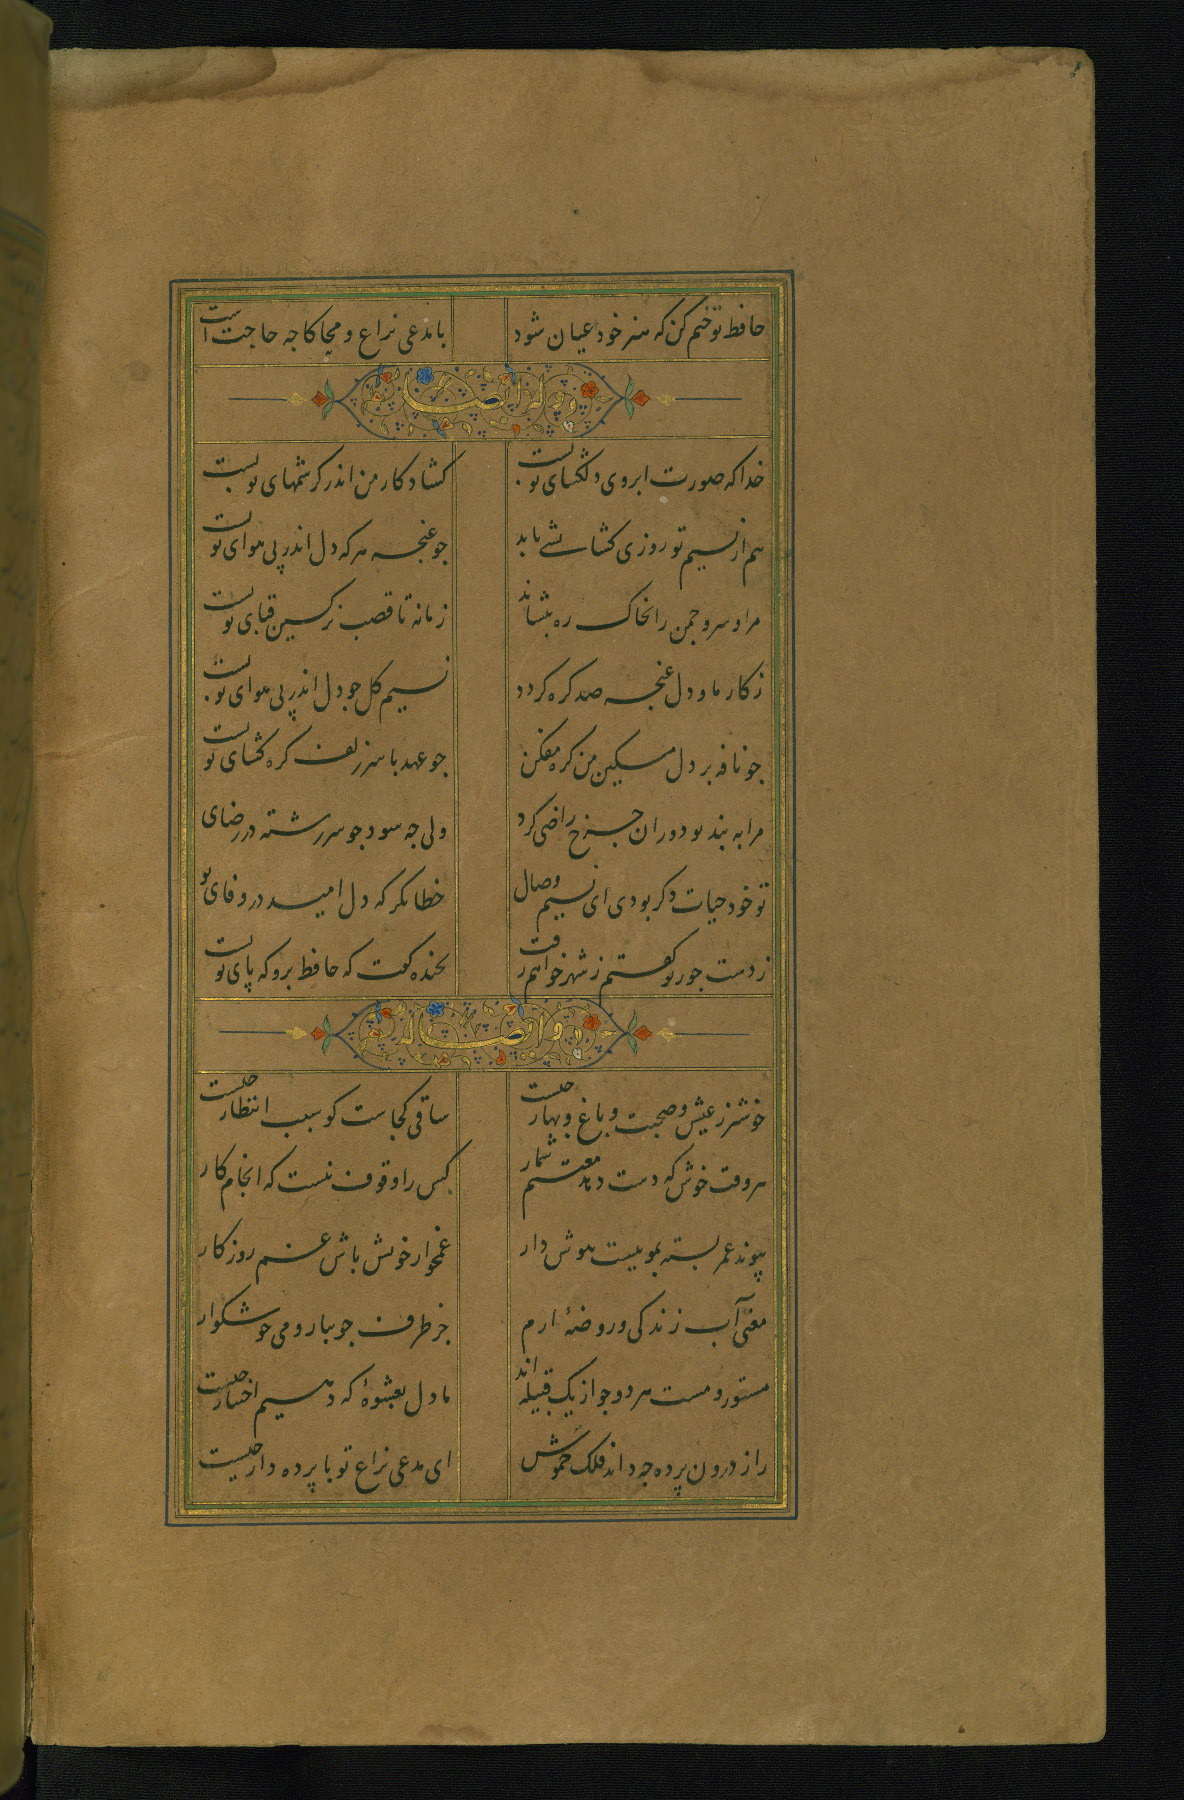 حافظ تو ختم کن که هنر خود عیان شود با مدعی نزاع و محاکا جه حاجت است
وله ایضا
خدا که صورت ابروی دلکشای تو بست کشاد کار من اندر کرشمهای تو بست
هم از نسیم تو روزی کشایشی یابد جو غنجه هر که دل اندر پی هوای تو بست
مرا و سرو جمن را بخاک ره بنشاند زمانه تا قصب نرکسین قبای تو بست
ز کار ما و دل غنجه صد کره کردد نسیم کل جو دل اندر پی هوای تو بست
جو نافه بر دل مسکین من کره مفکن جو عهد با سر زلف کره کشای تو بست
مرا به بند تو دوران جرخ راضی کرد ولی جه سود جو سررشته در رضای
تو خود حیات دکر بودی ای نسیم وصال خطا نکر که دل امید در وفای تو
ز دست جور تو کفتم ز شهر خواهم رفت بخنده کفت که حافظ برو که پای تو بست
و ایضا له
خوشتر ز عیش و صحبت و باغ و بهار جیست ساقی کجاست کو سبب انتظار جیست
هر وقت خوش که دست دهد مغتنم شمار کس را وقوف نیست که انجام کار
پیوند عمر بسته بموییست هوش دار غمخوار خویش باش غم روزکار
معنی آب زندکی و روضهٔ ارم جز طرف جویبار و می خوشکوار
مستور و مست هر دو جو از یک قبیله اند ما دل بعشوهٔ که دهیم اختیار جیست
راز درون پرده جه داند فلک خموش ای مدعی نزاع تو با پرده دار جیست